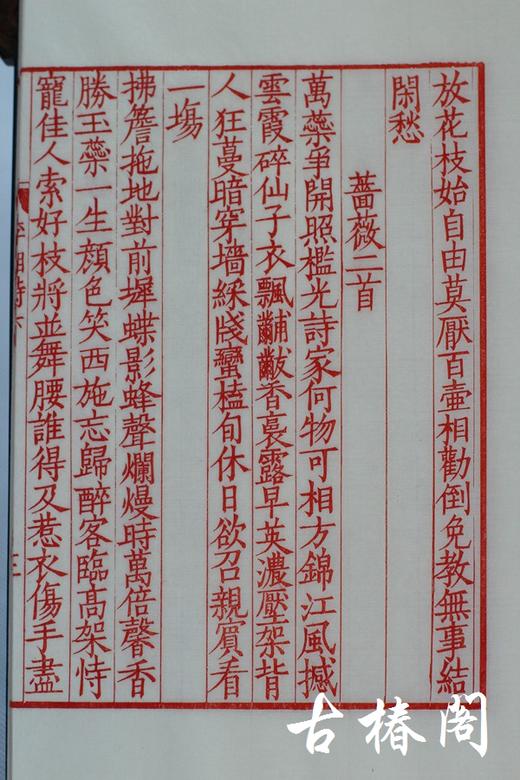 放花枝始自由莫厭百壷相勸倒免教無事結
閑愁
薔薇二首
萬蘂爭開照檻光詩家何物可相方錦江風撼
雲霞碎仙子衣飄黼黻香裛露早英濃壓架背
人狂蔓暗穿墻綵牋蠻榼旬休日欲召親賓看
一塲
拂簷拖地對前墀蝶影蜂聲爛熳時萬倍馨香
勝玉蘂一生顔色笑西施忘歸醉客臨髙架恃
寵佳人索好枝將並舞腰誰得及惹衣傷手盡
三
古椿阁